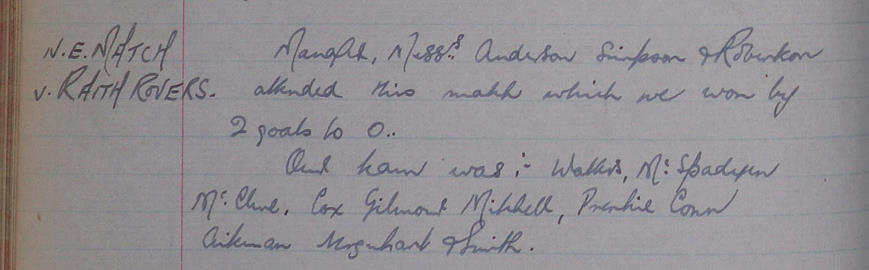 N.E. MATCH
v. RAITH ROVERS.
Manager, Mess.rs Anderson Simpson & Robertson
attended this match which we won by
2 goals to 0..
Our team was :- Watters, Mc: Spadyen
Mc: Clure, Cox Gilmour Mitchell, Prentice Conn
Aikman Urquhart & Smith.